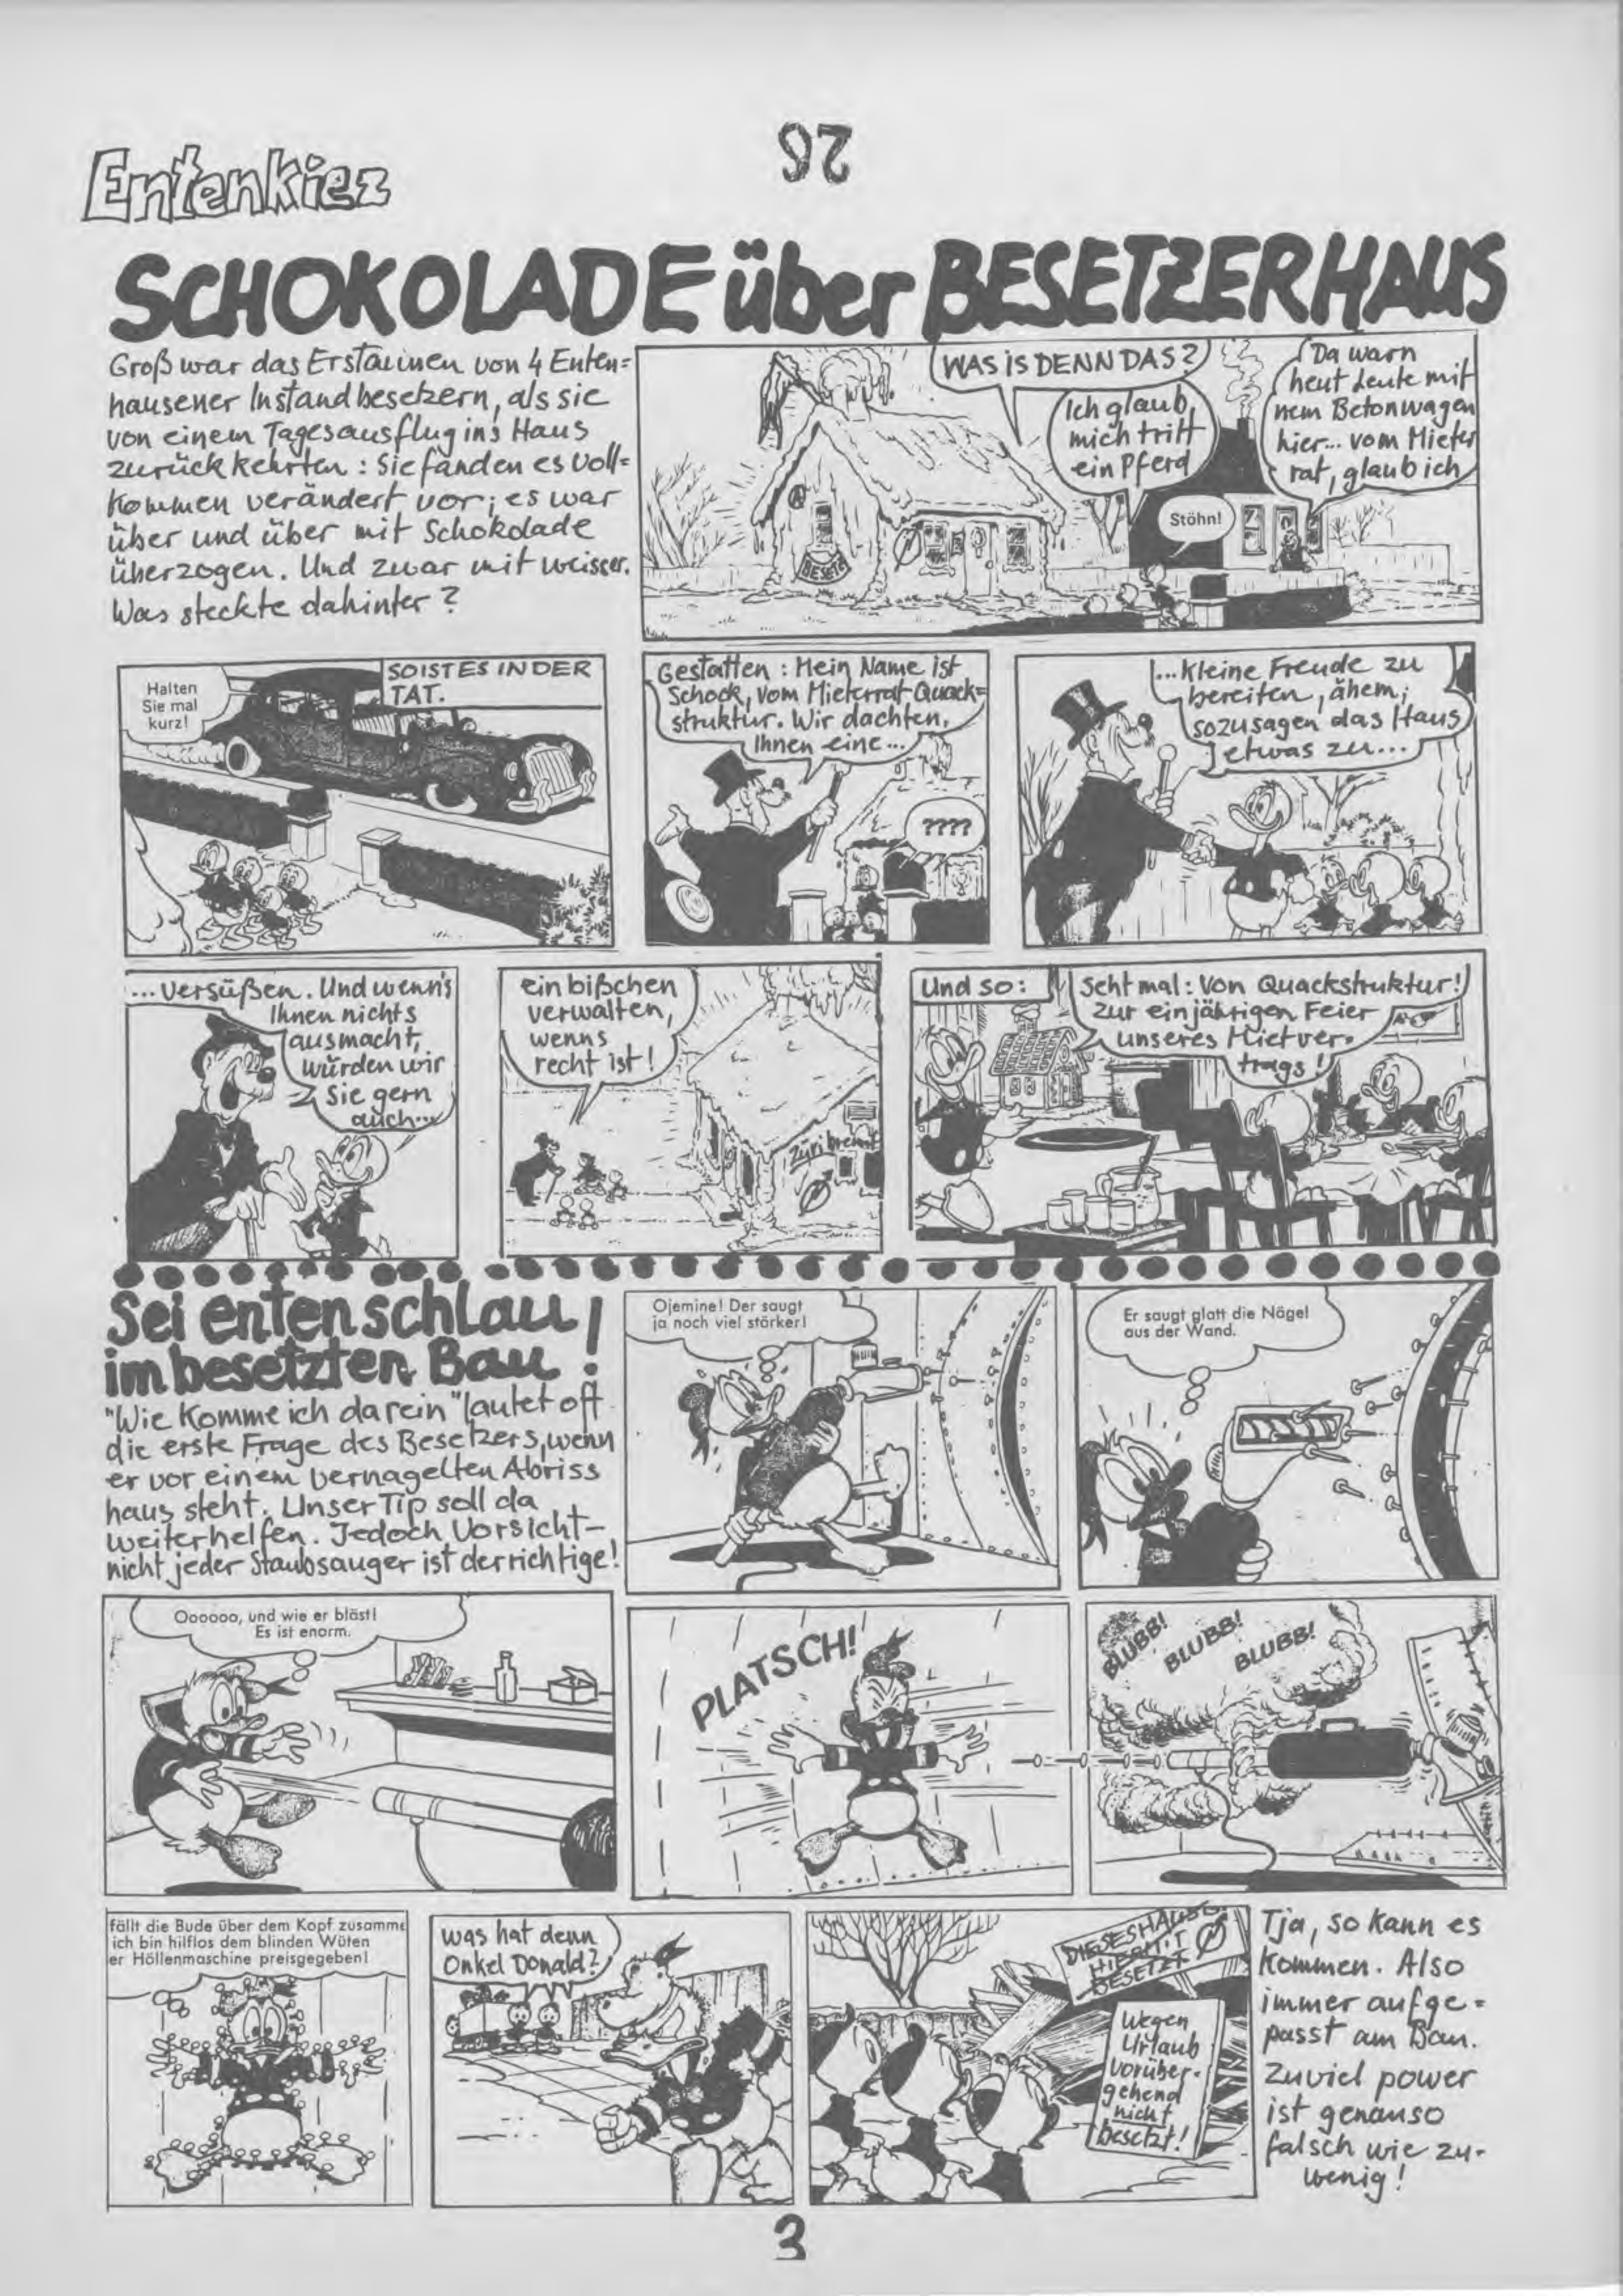 26
Entenkiez
SCHOKOLADE über BESETZERHAUS
Groß war das Erstaunen von 4 Enten=
hausener Instandbesetzern, als sie
von einem Tagesausflug ins Haus
zurückkehrten: Sie fanden es voll=
kommen verändert vor; es war
über und über mit Schokolade
überzogen. Und zwar mit weisser.
Was steckte dahinter?
WAS IS DENN DAS?
Ich glaub,
mich tritt
ein Pferd
Da warn
heut Leute mit
nem Betonwagen
hier... vom Mieter
rat, glaub ich
Stöhn!
BESETZ
Halten
Sie mal
kurz!
SO IST ES IN DER
TAT.
Gestatten: Mein Name ist
Schock, vom Mieterrat Quack=
struktur. Wir dachten,
Ihnen eine...
????
...kleine Freude zu
bereiten, ähem,
sozusagen das Haus
etwas zu...
...versüßen. Und wenn's
Ihnen nichts
ausmacht,
würden wir
Sie gern
auch...
ein bißchen
verwalten,
wenns
recht ist!
Züri brennt
Und so:
Seht mal: Von Quackstruktur!
Zur einjährigen Feier
unseres Mietver-
trags!
Sei entenschlau
im besetzten Bau!
"Wie komme ich da rein" lautet oft
die erste Frage des Besetzers, wenn
er vor einem vernagelten Abriss
haus steht. Unser Tip soll da
weiterhelfen. Jedoch Vorsicht-
nicht jeder Staubsauger ist der richtige!
Ojemine! Der saugt
ja noch viel stärker!
Er saugt glatt die Nägel
aus der Wand.
Oooooo, und wie er bläst!
Es ist enorm.
PLATSCH!
BLUBB!
BLUBB!
BLUBB!
fällt die Bude über dem Kopf zusamme
ich bin hilflos dem blinden Wüten
er Höllenmaschine preisgegeben!
was hat denn
Onkel Donald?
DIESES HAUS
HIERMIT
BESETZT
Wegen
Urlaub
vorüber-
gehend
nicht
besetzt!
Tja, so kann es
kommen. Also
immer aufge=
passt am Bau.
Zuviel power
ist genauso
falsch wie zu-
wenig!
3